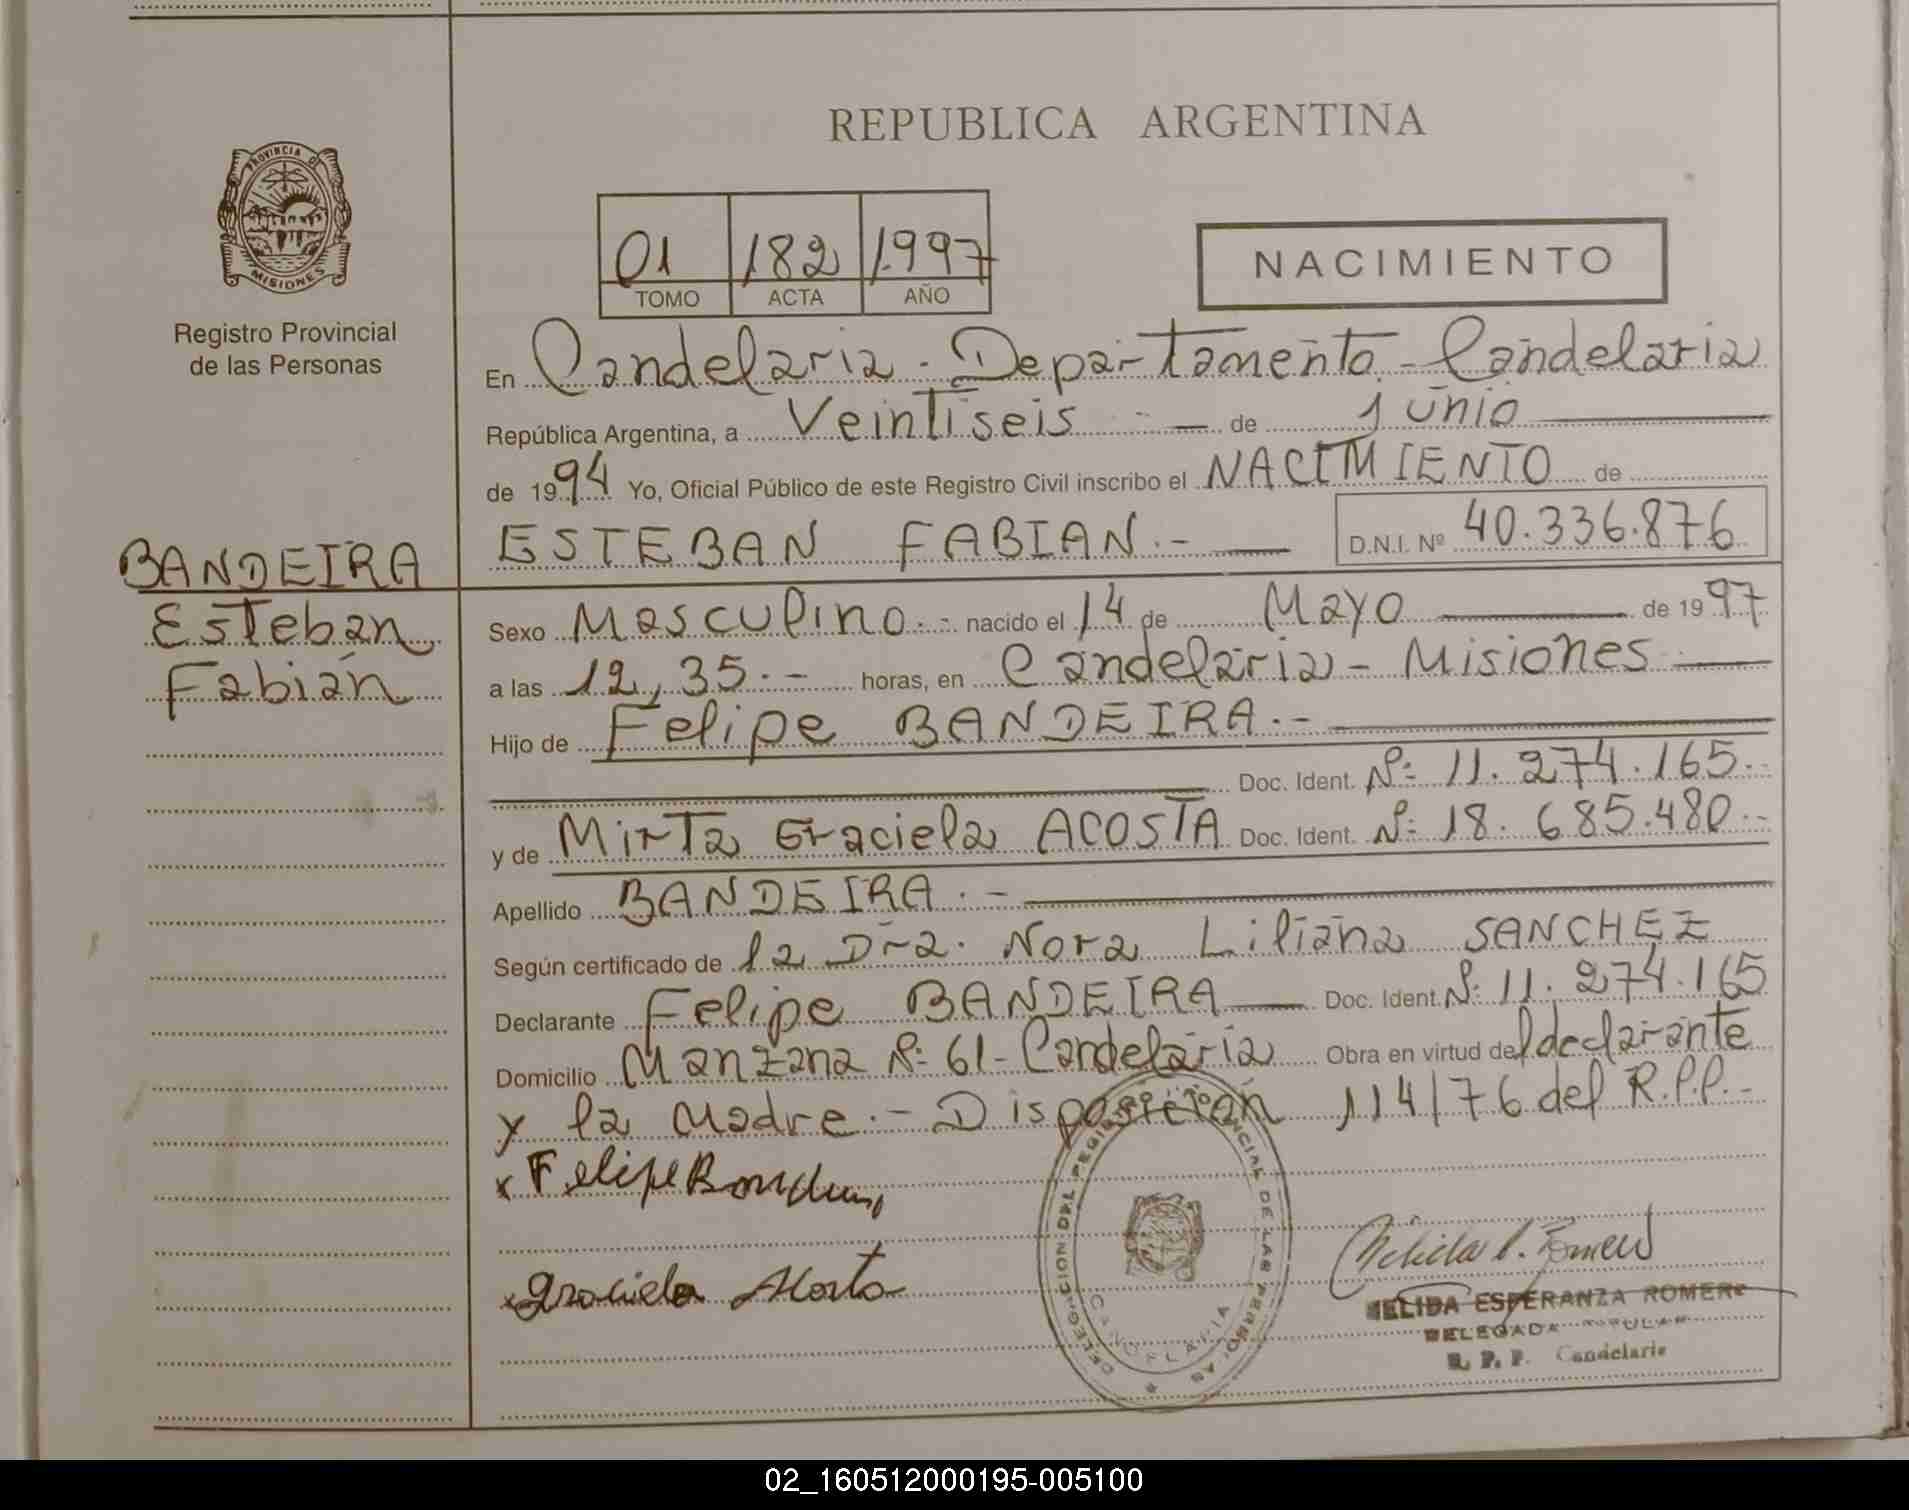 REPUBLICA ARGENTINA
PROVINCIA DE
MISIONES
Registro Provincial
de las Personas
01 182 1997
TOMO ACTA AÑO
NACIMIENTO
En Candelaria - Departamento - Candelaria
República Argentina, a Veintiseis - de Junio
de 1994 Yo, Oficial Público de este Registro Civil inscribo el NACIMIENTO de
ESTEBAN FABIAN.- D.N.I. Nº 40.336.876
BANDEIRA
Esteban
Fabián
Sexo Masculino.- nacido el 14 de Mayo de 1997
a las 12,35.- horas, en Candelaria - Misiones
Hijo de Felipe BANDEIRA.-
Doc. Ident. Nº 11.274.165.-
y de Mirta Graciela ACOSTA Doc. Ident. Nº 18.685.480.-
Apellido BANDEIRA.-
Según certificado de la Dra. Nora Liliana SANCHEZ
Declarante Felipe BANDEIRA Doc. Ident. Nº 11.274.165
Domicilio Manzana Nº 61 - Candelaria Obra en virtud del declarante
y la Madre.- Disposición 114/76 del R.P.P.-
x Felipe Bandeira
x Graciela Acosta
DELEGACION DEL REGISTRO PROVINCIAL DE LAS PERSONAS
CANDELARIA
NELIDA ESPERANZA ROMERO
DELEGADA TITULAR
R. P. P. Candelaria
02_160512000195-005100